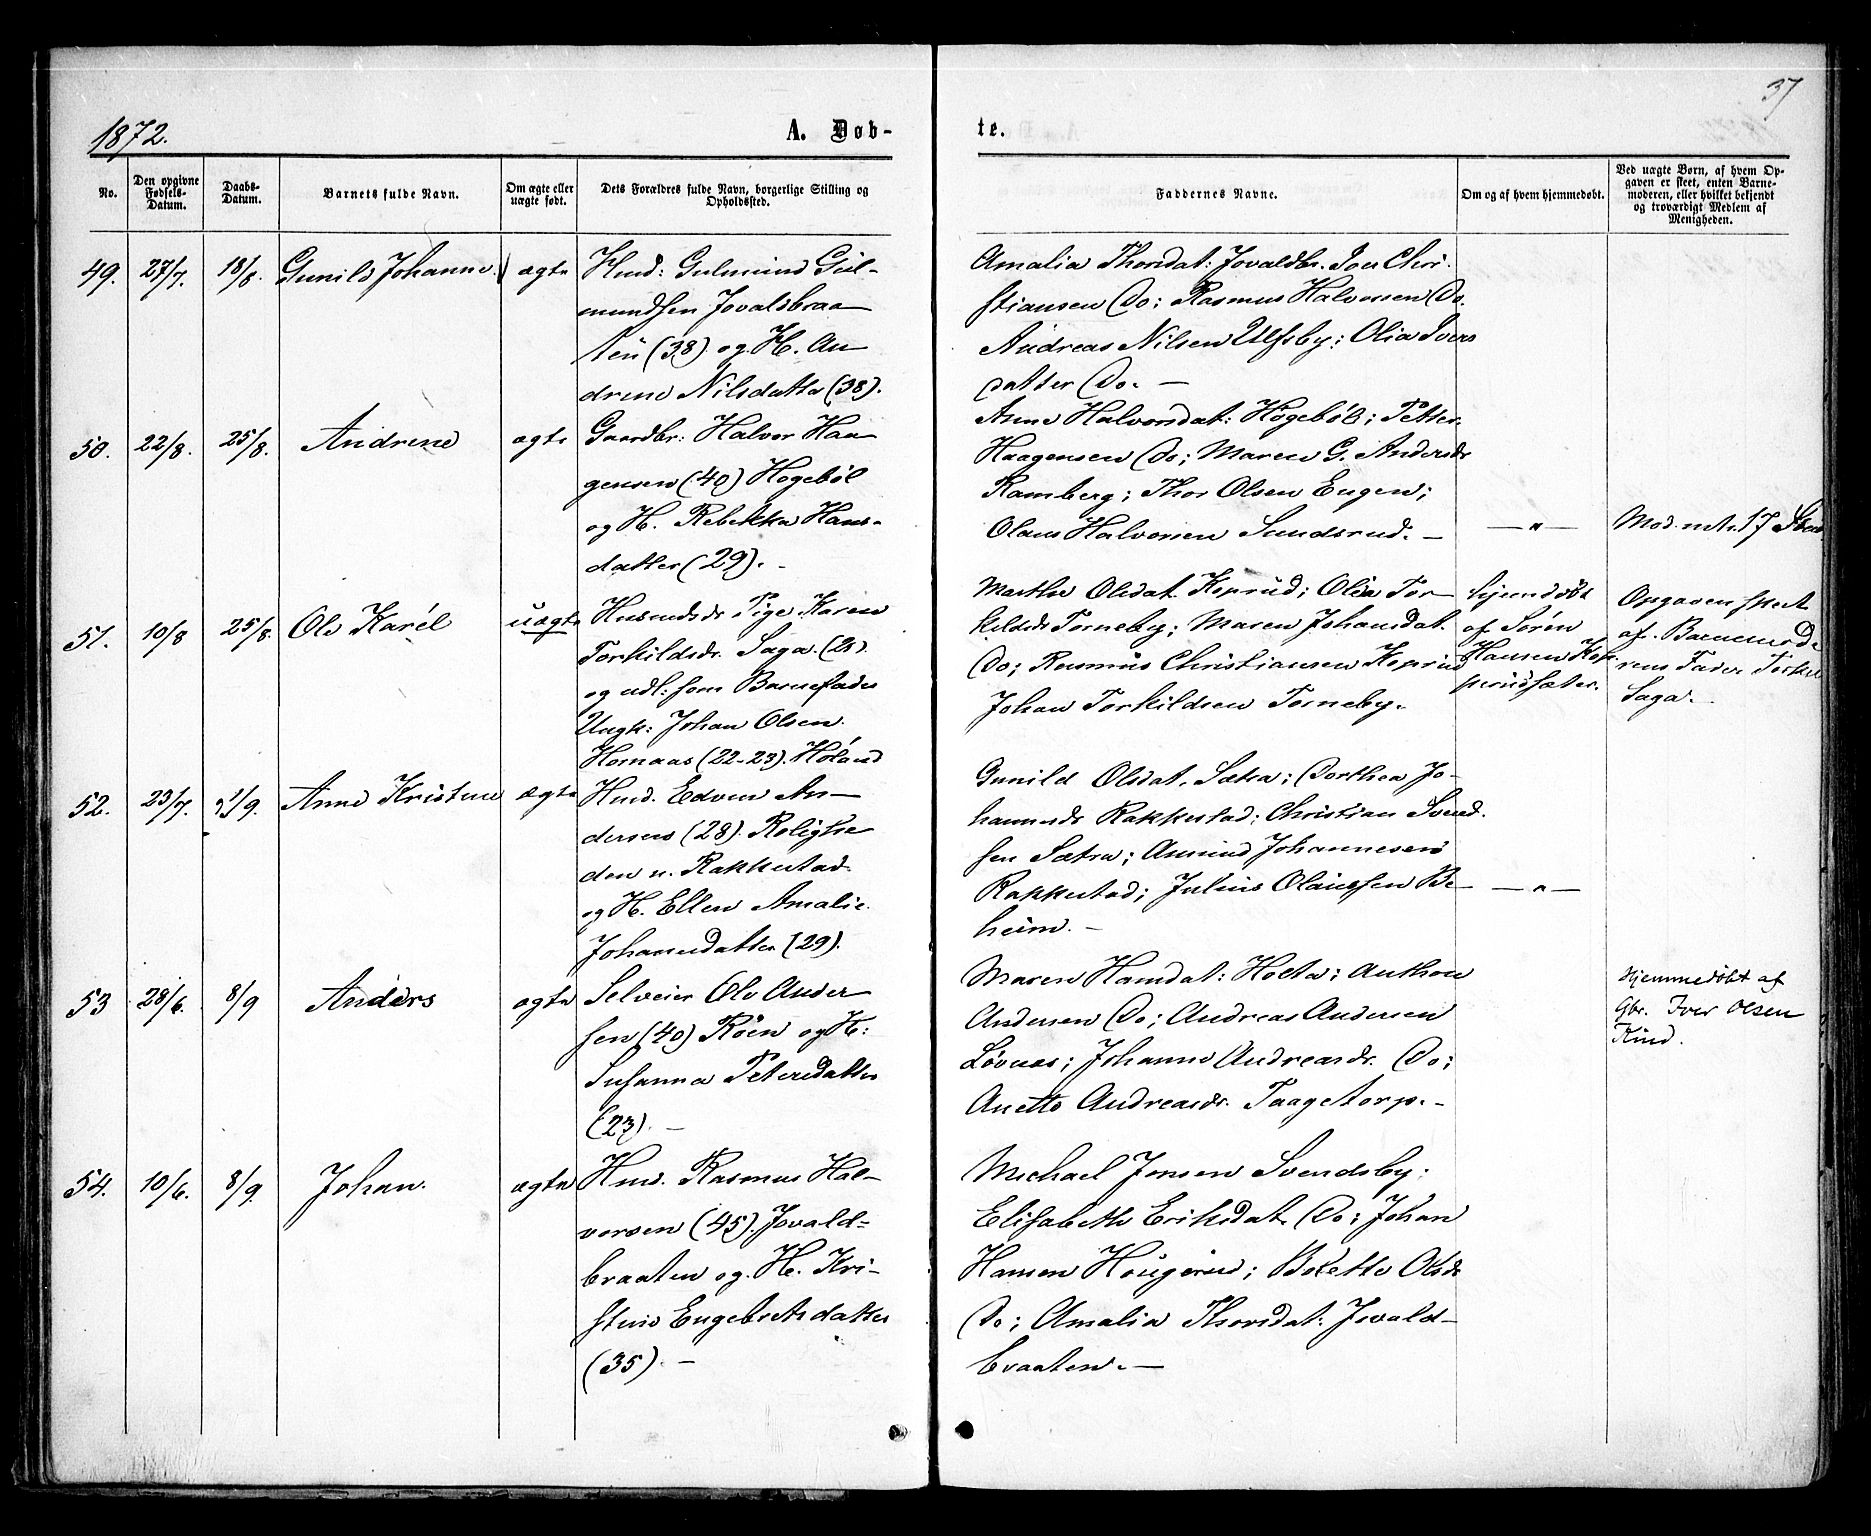 37
1872.
A. Døb-
te.
No.
Den opgivne Fødsels-Datum.
Daabs-Datum.
Barnets fulde Navn.
Om ægte eller uægte født.
Dets Forældres fulde Navn, borgerlige Stilling og Opholdssted.
Faddernes Navne.
Om og af hvem hjemmedøbt.
Ved uægte Børn, af hvem Opgaven er skeet, enten Barnemoderen, eller hvilket bekjendt og troværdigt Medlem af Menigheden.
49. 27/7. 18/8. Gunild Johanne ægte
Hmd: Gulmund Gul-
mundsen Jovaldsbraa
ten (38) og H. An
drine Nilsdatter (38).
Amalia Thorsdat: Jovaldbr. Iver Chri-
stiansen Do; Rasmus Halvorsen Do.
Andreas Nilsen Ulfsby; Olia Ivers
datter Do. —
50. 22/8. 25/8. Andrine ægte
Gaardbr: Halvor Haa
gensen (40) Høgebøl
og H. Rebekka Hans-
datter (29). -
Anne Halvorsdat: Høgebøl; Petter
Haagensen Do; Maren G. Andersdr
Ramberg; Thor Olsen Engen;
Olaus Halvorsen Sundsrud. —
— " —
51. 10/8 25/8. Ole Karél uægte
Husmdsdr. Pige Karen
Torkildsdr. Saga. (21).
og udl: som Barnefader
Ungk: Johan Olsen
Homaas (22-23). Høland
Marthe Olsdat Koprud; Olia Tor-
kildsdr Torneby; Maren Johansdat.
Do; Rasmus Christiansen Koprud
Johan Torkildsen Torneby.
hjemdøbt
af Søren
Hansen Kop
perudsæter.
Opgaven skeet
af Barnemode
rens Fader Torkil
Saga.
52. 23/7. 1/9. Anne Kristine ægte
Hmd. Edvin An-
dersen (28). Rolighe
den u. Rakkestad
og H. Ellen Amalie
Johannesdatter (29).
Gunild Olsdat. Sætra; Dorthea Jo-
hannesdr Rakkestad; Christian Svend-
sen Sætra; Amund Johannesen
Rakkestad; Julius Olaussen Be-
heim. —
— " —
53 28/6. 8/9 Anders ægte
Selveier Ole Ander
sen (40) Röen og H:
Susanna Petersdatter
(23). —
Maren Hansdat: Holta; Anthon
Andersen Do; Andreas Andersen
Løvnes; Johanne Andreasdr. Do;
Anette Andreasdr. Taagetorp. -
Hjemmedøbt af
Gbr. Iver Olsen
Kind.
54. 10/6. 8/9 Johan. ægte
Hmd. Rasmus Hal-
vorsen (45). Jovald-
braaten og H. Kri-
stine Engebretsdatter
(35). —
Michael Jensen Svendsby;
Elisabeth Eriksdat Do; Johan
Hansen Hougerud; Bolette Olsdr
Do; Amalia Thorsdat: Jovald-
braaten. —